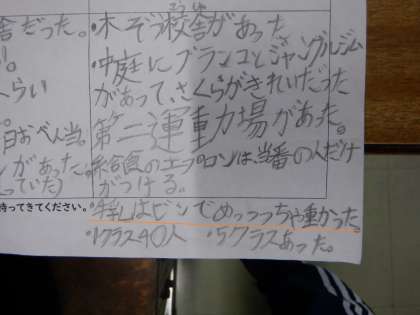 舎だった。
らい
日おべん当。
があった。
っていた)
持ってきてください。
こうしゃ
・木ぞう校舎があった
・中庭にブランコとジャングルジム
があって、さくらがきれいだった
第二運動場があった。
給食のエプロンは、当番の人だけ
がつける。
・牛乳はビンでめっっっちゃ重かった。
・1クラス40人 ・5クラスあった。